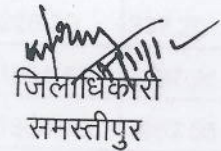 जिलाधिकारी
समस्तीपुर